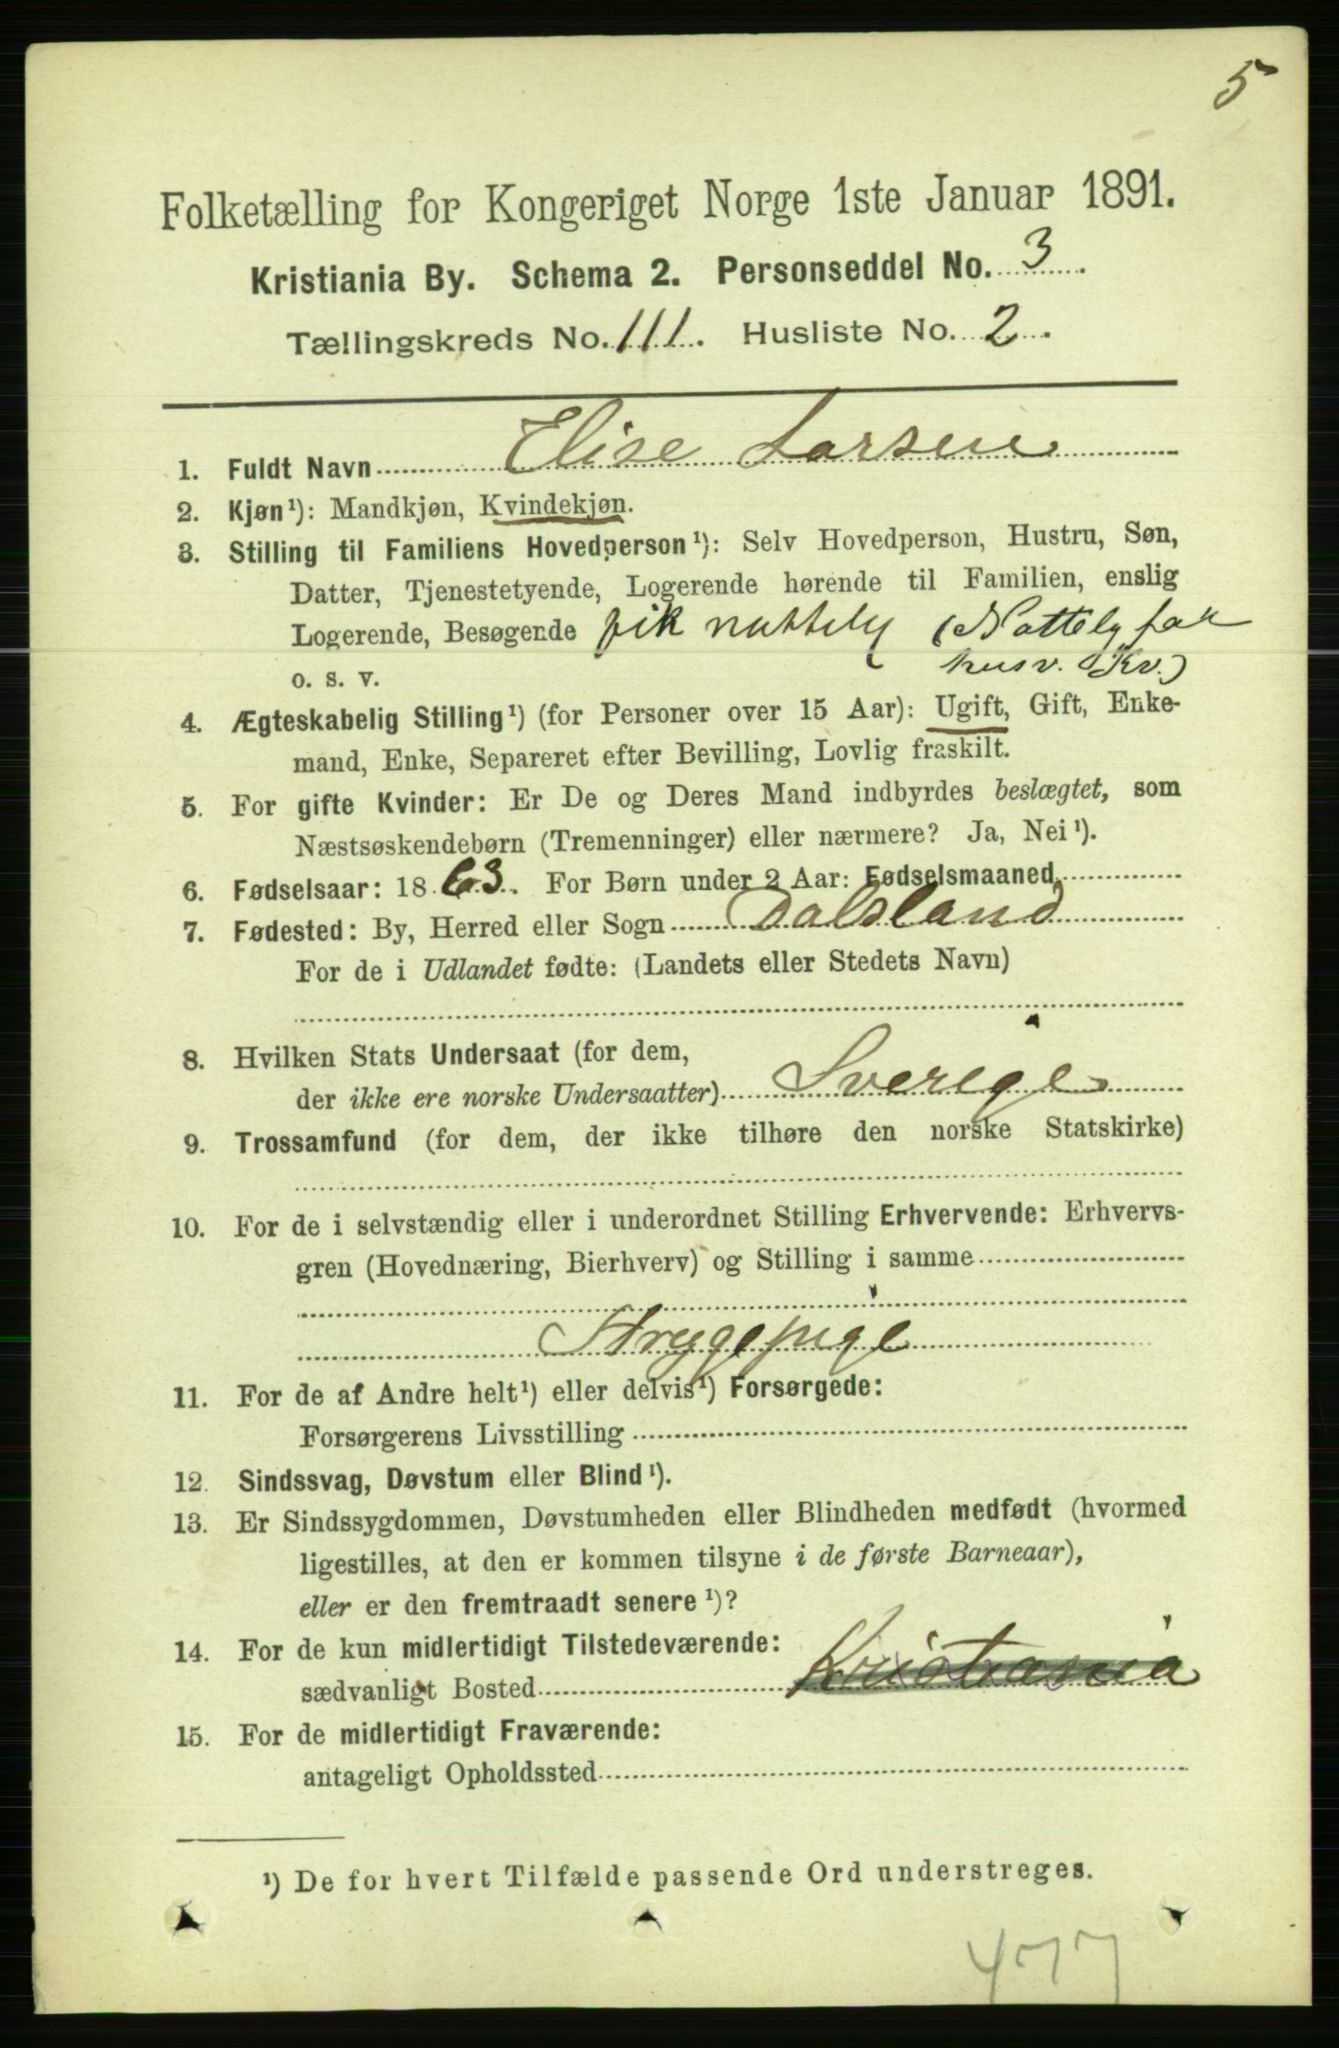 5
Folketælling for Kongeriget Norge 1ste Januar 1891.
Kristiania By. Schema 2. Personseddel No. 3.
Tællingskreds No. 111. Husliste No. 2.
1. Fuldt Navn Elise Larsen
2. Kjøn¹): Mandkjøn, Kvindekjøn.
3. Stilling til Familiens Hovedperson¹): Selv Hovedperson, Hustru, Søn,
Datter, Tjenestetyende, Logerende hørende til Familien, enslig
Logerende, Besøgende fik nattely (Nattely for
o. s. v. husv. Kv.)
4. Ægteskabelig Stilling¹) (for Personer over 15 Aar): Ugift, Gift, Enke-
mand, Enke, Separeret efter Bevilling, Lovlig fraskilt.
5. For gifte Kvinder: Er De og Deres Mand indbyrdes beslægtet, som
Næstsøskendebørn (Tremenninger) eller nærmere? Ja, Nei¹).
6. Fødselsaar: 1863. For Børn under 2 Aar: Fødselsmaaned
7. Fødested: By, Herred eller Sogn Dalsland
For de i Udlandet fødte: (Landets eller Stedets Navn)
8. Hvilken Stats Undersaat (for dem,
der ikke ere norske Undersaatter) Sverige
9. Trossamfund (for dem, der ikke tilhøre den norske Statskirke)
10. For de i selvstændig eller i underordnet Stilling Erhvervende: Erhvervs-
gren (Hovednæring, Bierhverv) og Stilling i samme
Strygepige
11. For de af Andre helt¹) eller delvis¹) Forsørgede:
Forsørgerens Livsstilling
12. Sindssvag, Døvstum eller Blind¹).
13. Er Sindssygdommen, Døvstumheden eller Blindheden medfødt (hvormed
ligestilles, at den er kommen tilsyne i de første Barneaar),
eller er den fremtraadt senere¹)?
14. For de kun midlertidigt Tilstedeværende:
sædvanligt Bosted Kristiania
15. For de midlertidigt Fraværende:
antageligt Opholdssted
¹) De for hvert Tilfælde passende Ord understreges.
477